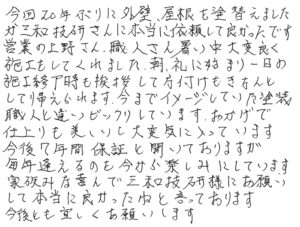 今回20年ぶりに外壁、屋根を塗替えました
が三和技研さんに本当に依頼して良かったです
営業の上野さん、職人さん暑い中大変良く
施工をしてくれました、朝、礼に始まり一日の
施工終了時も挨拶して片付けもきちんと
して帰えられます、今までイメージしていた塗装
職人と違いビックリしています、おかげで
仕上りも美しいし大変気に入っています
今後7年間保証と聞いておりますが
毎年逢えるのも今から楽しみにしています
家族みな喜んで三和技研様にお願い
して本当に良かったねと言っております
今後とも宜しくお願いします